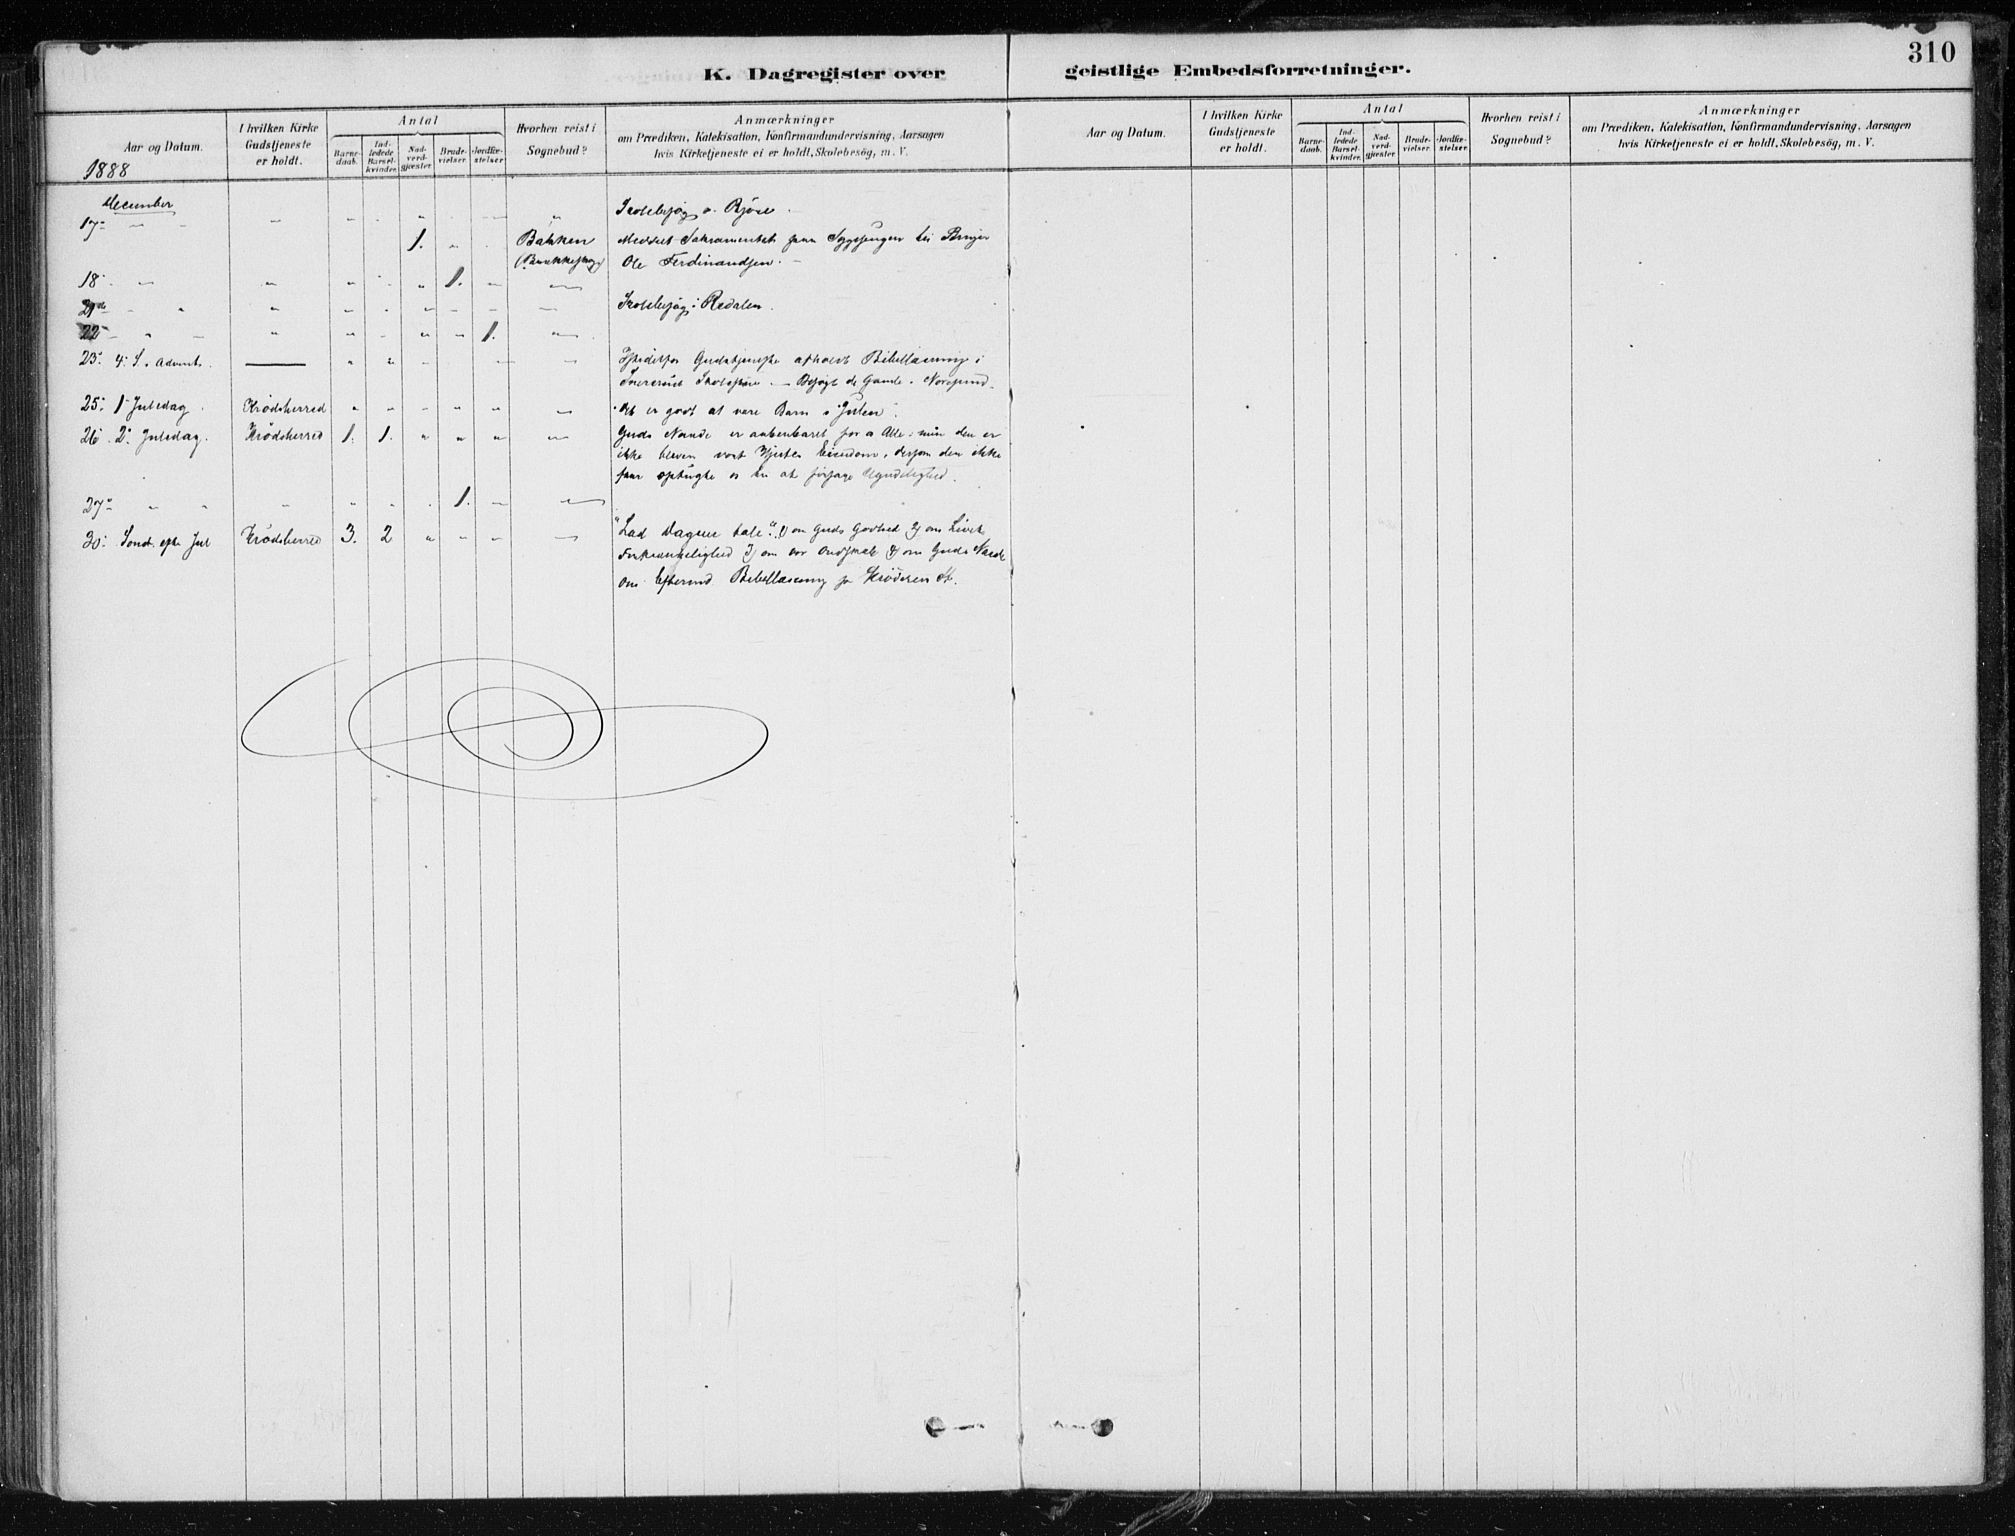 310
K. Dagregister over geistlige Embedsforretninger.
Aar og Datum. I hvilken Kirke Gudstjeneste er holdt. Antal Barnedaab. Indledede Barselkvinder. Nadverdgjæster. Brudevielser. Jordfæstelser. Hvorhen reist i Sognebud? Anmærkninger om Prædiken, Katekisation, Konfirmandundervisning, Aarsagen hvis Kirketjeneste ei er holdt, Skolebesög, m. V.
Aar og Datum. I hvilken Kirke Gudstjeneste er holdt. Antal Barnedaab. Indledede Barselkvinder. Nadverdgjæster. Brudevielser. Jordfæstelser. Hvorhen reist i Sognebud? Anmærkninger om Prædiken, Katekisation, Konfirmandundervisning, Aarsagen hvis Kirketjeneste ei er holdt, Skolebesög, m. V.
1888
December
17 " " Skolebesøg
1. Bakken Meddelt Sakramentet paa Sygesengen til
Ole Ferdinandsen.
18 1.
21 Skolebesøg i Redalen.
22 1.
23. 4. S. Advent. Istedetfor Gudstjeneste afholdt Bibellæsning i
Besøgt de Gamle
25. 1 Juledag. Krødsherred Det er godt at være Barn i Julen.
26. 2. Juledag. Krødsherred 1. 1. Guds Naade er aabenbaret for Alle; men den er
ikke bleven vort Hjertes Eiendom, dersom den ikke
faar optugte os til at forsage Ugudelighed.
27 1.
30. Sønd. efter Jul Krødsherred 3. 2 "Lad Dagene tale": 1) om Guds Godhed 2) om Livets
Forkrænkelighed 3) om vor Ondskab 4) om Guds Naade
Om Bibellæsning Krøderen St.